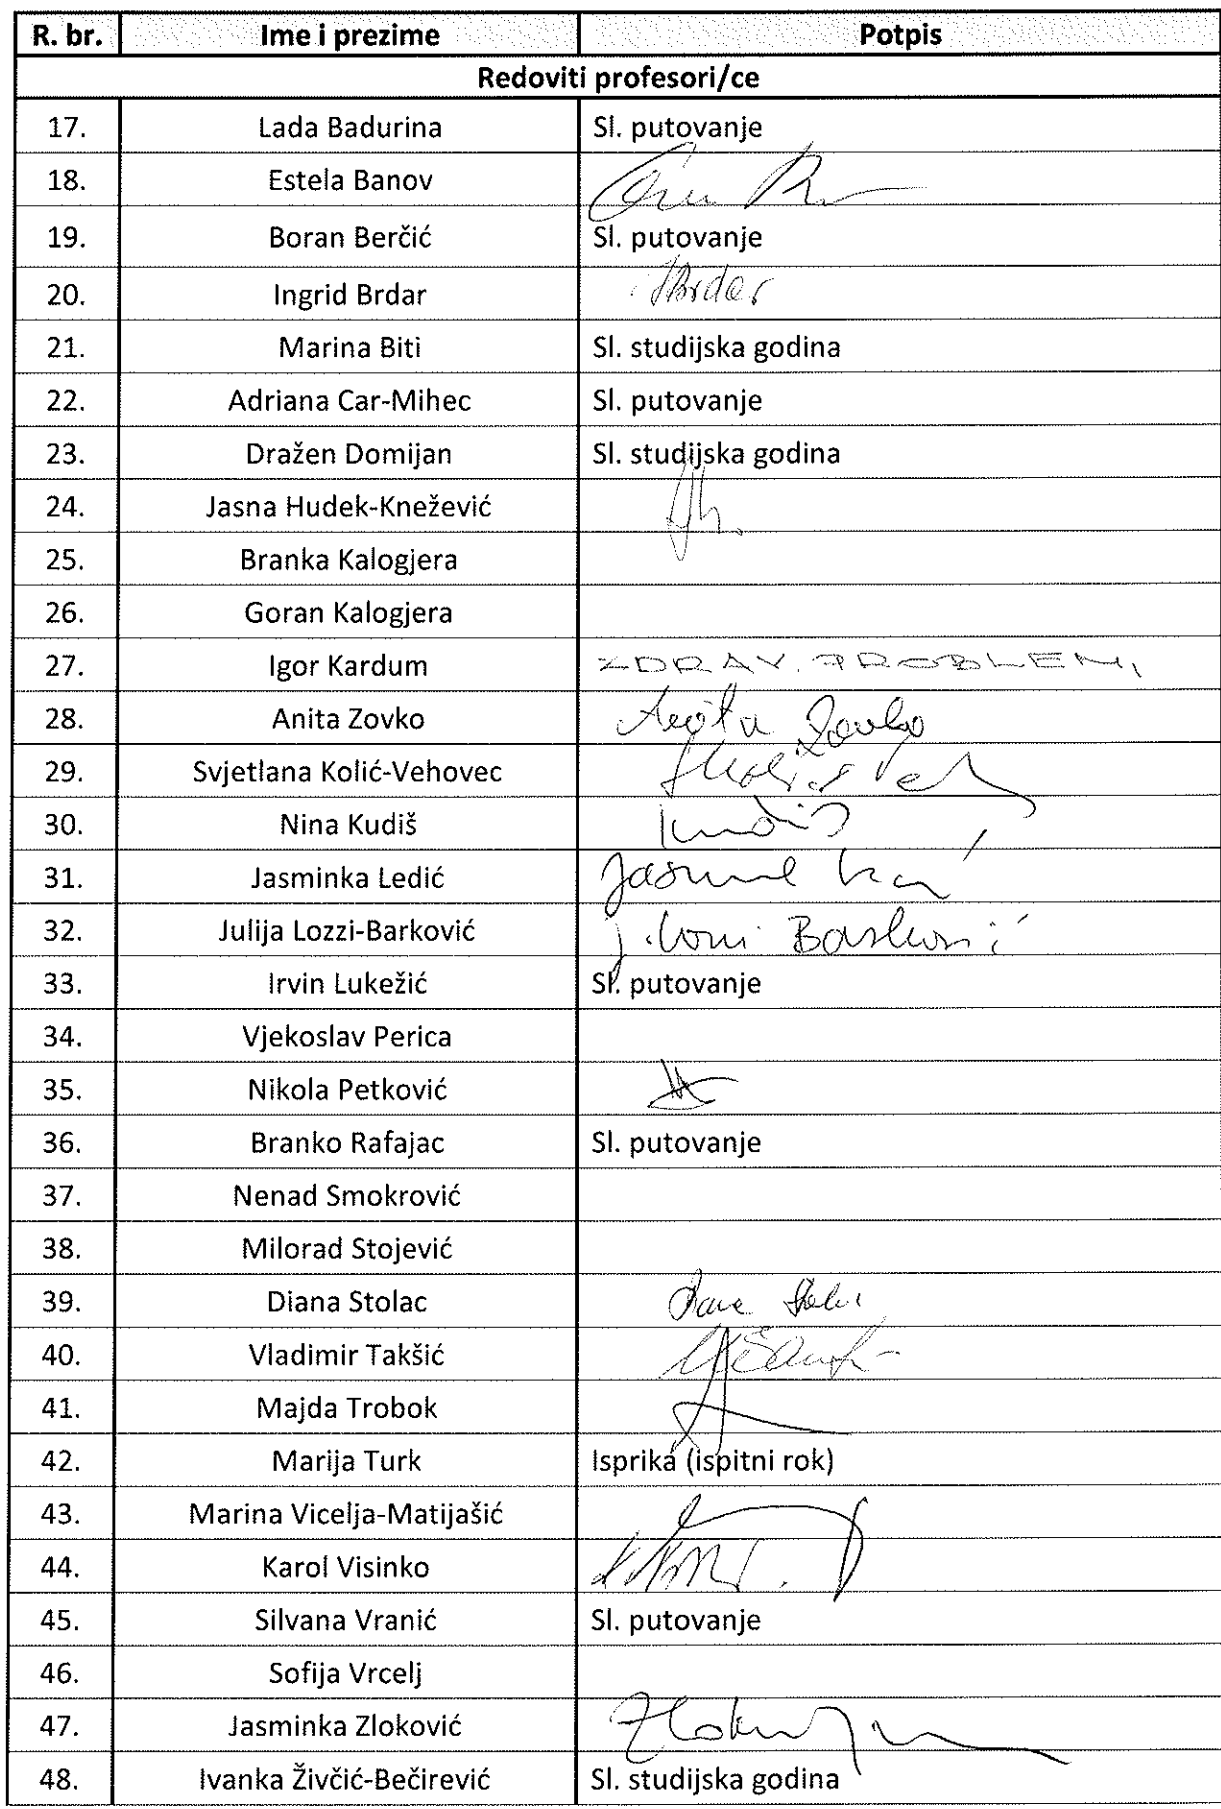 R. br. Ime i prezime Potpis
Redoviti profesori/ce
17. Lada Badurina Sl. putovanje
18. Estela Banov
19. Boran Berčić Sl. putovanje
20. Ingrid Brdar IBrdar
21. Marina Biti Sl. studijska godina
22. Adriana Car-Mihec Sl. putovanje
23. Dražen Domijan Sl. studijska godina
24. Jasna Hudek-Knežević
25. Branka Kalogjera
26. Goran Kalogjera
27. Igor Kardum ZDRAV. PROBLEMI
28. Anita Zovko Anita Zovko
29. Svjetlana Kolić-Vehovec
30. Nina Kudiš Kudiš
31. Jasminka Ledić
32. Julija Lozzi-Barković J. Lozzi Barković
33. Irvin Lukežić Sl. putovanje
34. Vjekoslav Perica
35. Nikola Petković
36. Branko Rafajac Sl. putovanje
37. Nenad Smokrović
38. Milorad Stojević
39. Diana Stolac
40. Vladimir Takšić
41. Majda Trobok
42. Marija Turk Isprika (ispitni rok)
43. Marina Vicelja-Matijašić
44. Karol Visinko
45. Silvana Vranić Sl. putovanje
46. Sofija Vrcelj
47. Jasminka Zloković
48. Ivanka Živčić-Bečirević Sl. studijska godina